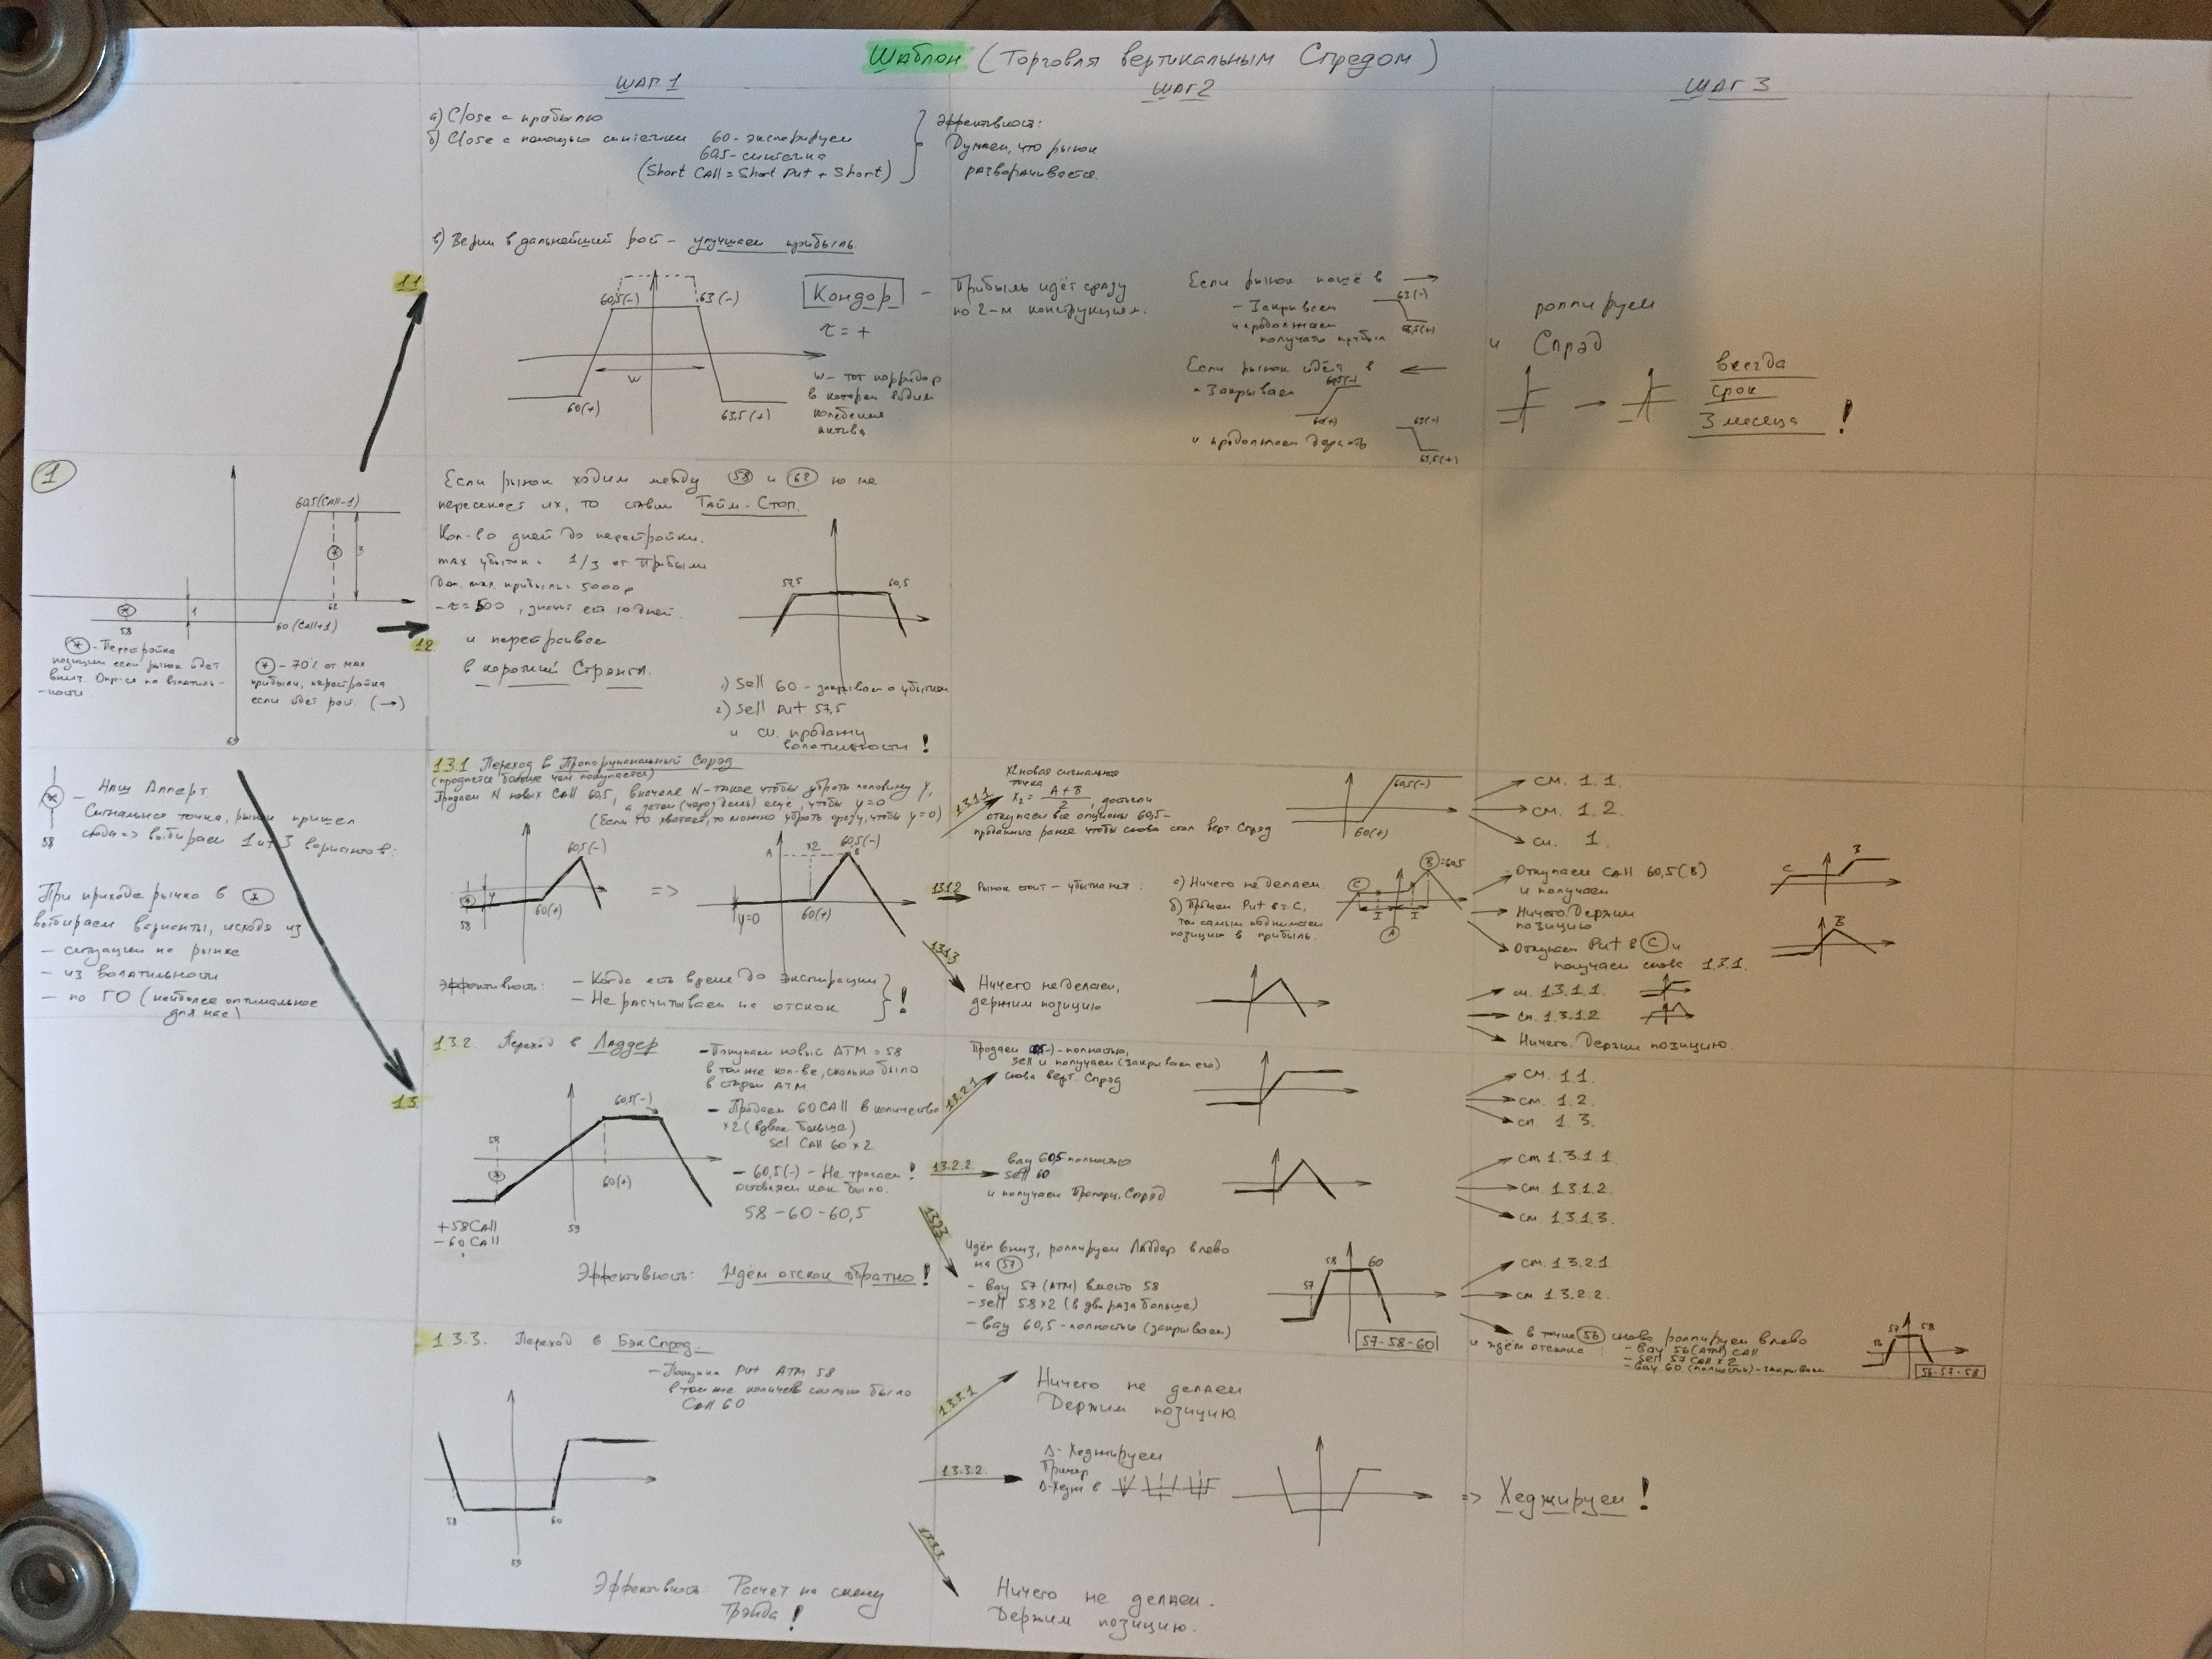 Шаблон (Торговля вертикальным Спредом)
ШАГ 1
ШАГ 2
ШАГ 3
а) Close с прибылью
б) Close с помощью синтетики 60 - экспирируем
60,5 - синтетика
(Short Call = Short Put + Short)
Эффективность:
Думаем, что рынок
разворачивается.
в) Верим в дальнейший рост - улучшаем прибыль.
1.1
60,5(-)
63(-)
W
60(+)
63,5(+)
Кондор
τ = +
W - тот коридор
в котором видим
колебения
актива
- Прибыль идёт сразу
по 2-м конструкциям.
Если рынок пошё в →
- Закрываем
и продолжаем
получать прибыл
63(-)
63,5(+)
Если рынок идёт в ←
- Закрываем
60,5(-)
60(+)
и продолжаем держать
63(-)
63,5(+)
роллируем
и Спрэд
всегда
срок
3 месяца !
1
60,5(Call-1)
3
62
1
58
60 (Call+1)
59
* - Перестройка
позиции если рынок идет
вниз. Опр-ся по волатиль-
-ности
* - 70% от мах
прибыли, перестройка
если идет рост. (→)
1.2
Если рынок ходим между 58 и 62 но не
пересекает их, то ставим Тайм-Стоп.
Кол-во дней до перестройки.
max убыток = 1/3 от Прибыли
Доп. max прибыль = 5000р
- τ = 500, значит есть 10 дней.
и перестраивае
в короткий Стрэнгл.
57,5
60,5
1) Sell 60 - закрываем с убытком
2) Sell Put 57,5
и см. продажу
волатильности !
* - Наш Аллерт
Сигнальная точка, рынок пришел
сюда => выбираем 1 из 3 вариантов:
58
При приходе рынка в *
выбираем варианты, исходя из
- ситуации на рынке
- из волатильности
- по ГО (наиболее оптимальное
для нас)
1.3
1.3.1 Переход в Пропорциональный Спрэд
(продается больше чем покупается)
Продаем N новых Call 60,5, вначале N - такое чтобы убрать половину Y,
а затем (через день) еще, чтобы y=0
(Если ГО хватает, то можно убрать сразу, чтобы y=0)
60,5(-)
Y
58
60(+)
=>
A
x2
60,5(-)
B
y=0
60(+)
Эффективность: - Когда есть время до экспирации
- Не расчитываем на отскок !
1.3.1.1
X2 новая сигнальная
точка
X2 = A+B / 2, достигли
откупаем все опционы 60,5 -
проданные ранее чтобы снова стал верт. Спрэд
60,5(-)
60(+)
см. 1.1.
см. 1.2.
см. 1.
1.3.1.2
Рынок стоит - убытка нет:
а) Ничего не делаем.
б) Продаем Put в т. С,
тем самым поднимаем
позицию в прибыль.
C
B = 60,5
I
I
A
Откупаем Call 60,5(B)
и получаем
Ничего. Держим
позицию
Откупаем Put в C и
получаем снова 1.3.1.
C
B
B
1.3.1.3
Ничего не делаем,
держим позицию
см. 1.3.1.1.
см. 1.3.1.2
Ничего. Держим позицию.
1.3.2. Переход в Ладдер
- Покупаем новые ATM = 58
в том же кол-ве, сколько было
в старом ATM
- Продаем 60 Call в количестве
x2 (вдвое больше)
sel Call 60 x 2
- 60,5(-) - Не трогаем !
оставляем как было.
58 - 60 - 60,5
60,5(-)
58
60(+)
59
+58 Call
-60 Call
Эффективность: Ждём отскок обратно !
1.3.2.1
снова верт. Спрэд
см. 1.1.
см. 1.2.
см. 1.3.
1.3.2.2.
вау 60,5 полностью
sell 60
и получаем Пропорц. Спрэд
см 1.3.1.1
см. 1.3.1.2.
см. 1.3.1.3.
1.3.2.3
Идём вниз, роллируем Ладдер влево
на 57
- вау 57 (ATM) вместо 58
- sell 58 x2 (в два раза больше)
- вау 60,5 - полностью (закрываем)
57
58
60
57-58-60
см. 1.3.2.1
см. 1.3.2.2.
в точке 56 снова роллируем влево
и ждём отскока: - вау 56 (ATM) Call
- sell 57 Call x 2
- вау 60 (полностью) - закрываем
57
58
56-57-58
1.3.3. Переход в Бэк Спрэд.
- Покупка Put ATM 58
в том же количестве сколько было
Call 60
58
60
59
Эффективность Расчет на смену
Трэнда !
1.3.3.1
Ничего не делаем
Держим позицию
1.3.3.2.
Δ - Хеджируем
Пример
Δ-Хедж в
=> Хеджируем !
1.3.3.3
Ничего не делаем.
Держим позицию.